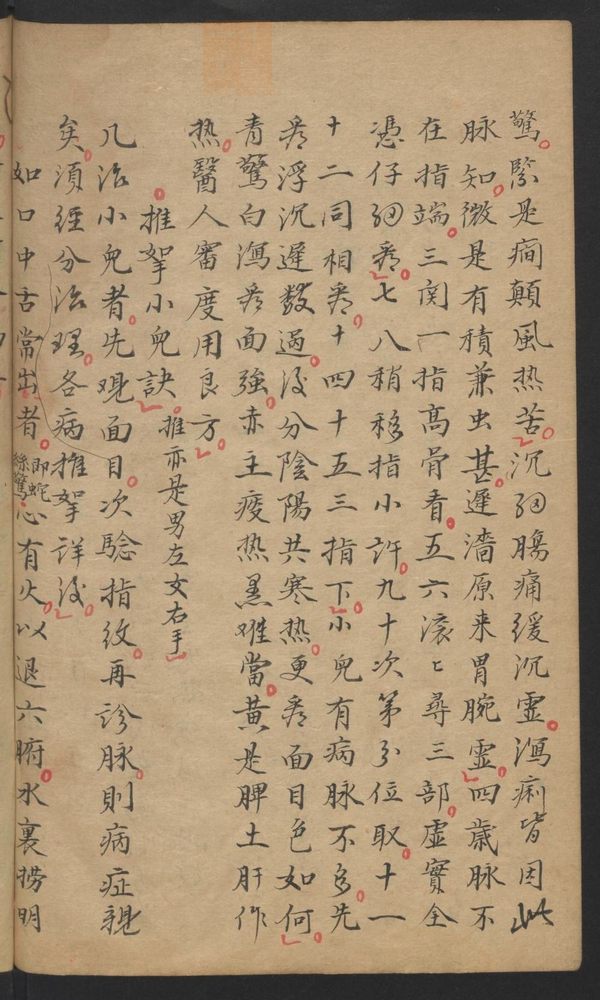 驚。緊是癎顛風热苦。沉細腸痛緩沉灵。瀉痢皆因此
脉知。微是有積兼虫甚。遲濇原来胃腕灵。四歲脉不
在指端。三関一指高骨看。五六滾〻尋三部。虛實全
憑仔細看。七八稍移指小許。九十次第分位取。十一
十二同相看。十四十五三指下。小兒有病脉不多。先
看浮沉遲数過。後分陰陽共寒热。更看面目色如何。
青驚白瀉看面強。赤主疫热黑难當。黃是脾土肝作
热。醫人審度用良方。
推拏小兒訣。推亦是男左女右手
凡治小兒者。先覌面目。次騐指紋。再診脉。則病症親
矣。須經分治理。各病推拏詳後。
如口中舌常出者。即蛇絲驚心有火。以退六腑。水裏捞明